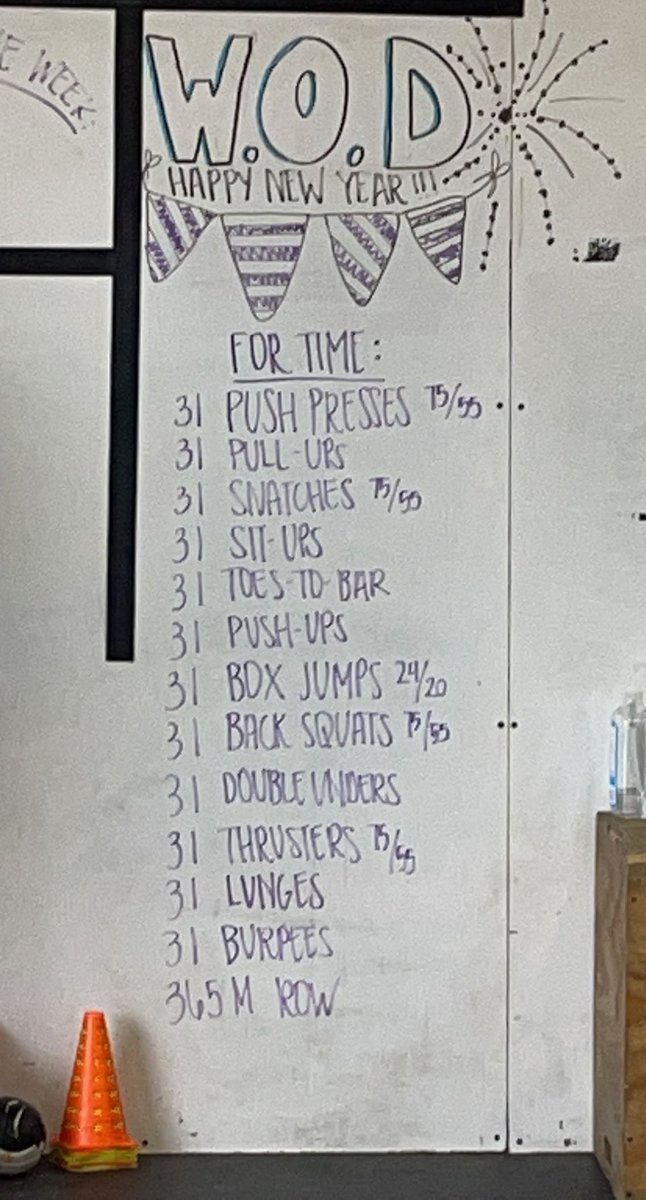 E WEEK:
W.O.D
HAPPY NEW YEAR!!!
FOR TIME:
31 PUSH PRESSES 75/55
31 PULL-UPS
31 SNATCHES 75/55
31 SIT-UPS
31 TOES-TO-BAR
31 PUSH-UPS
31 BOX JUMPS 24/20
31 BACK SQUATS 75/55
31 DOUBLE UNDERS
31 THRUSTERS 75/55
31 LUNGES
31 BURPEES
365 M ROW